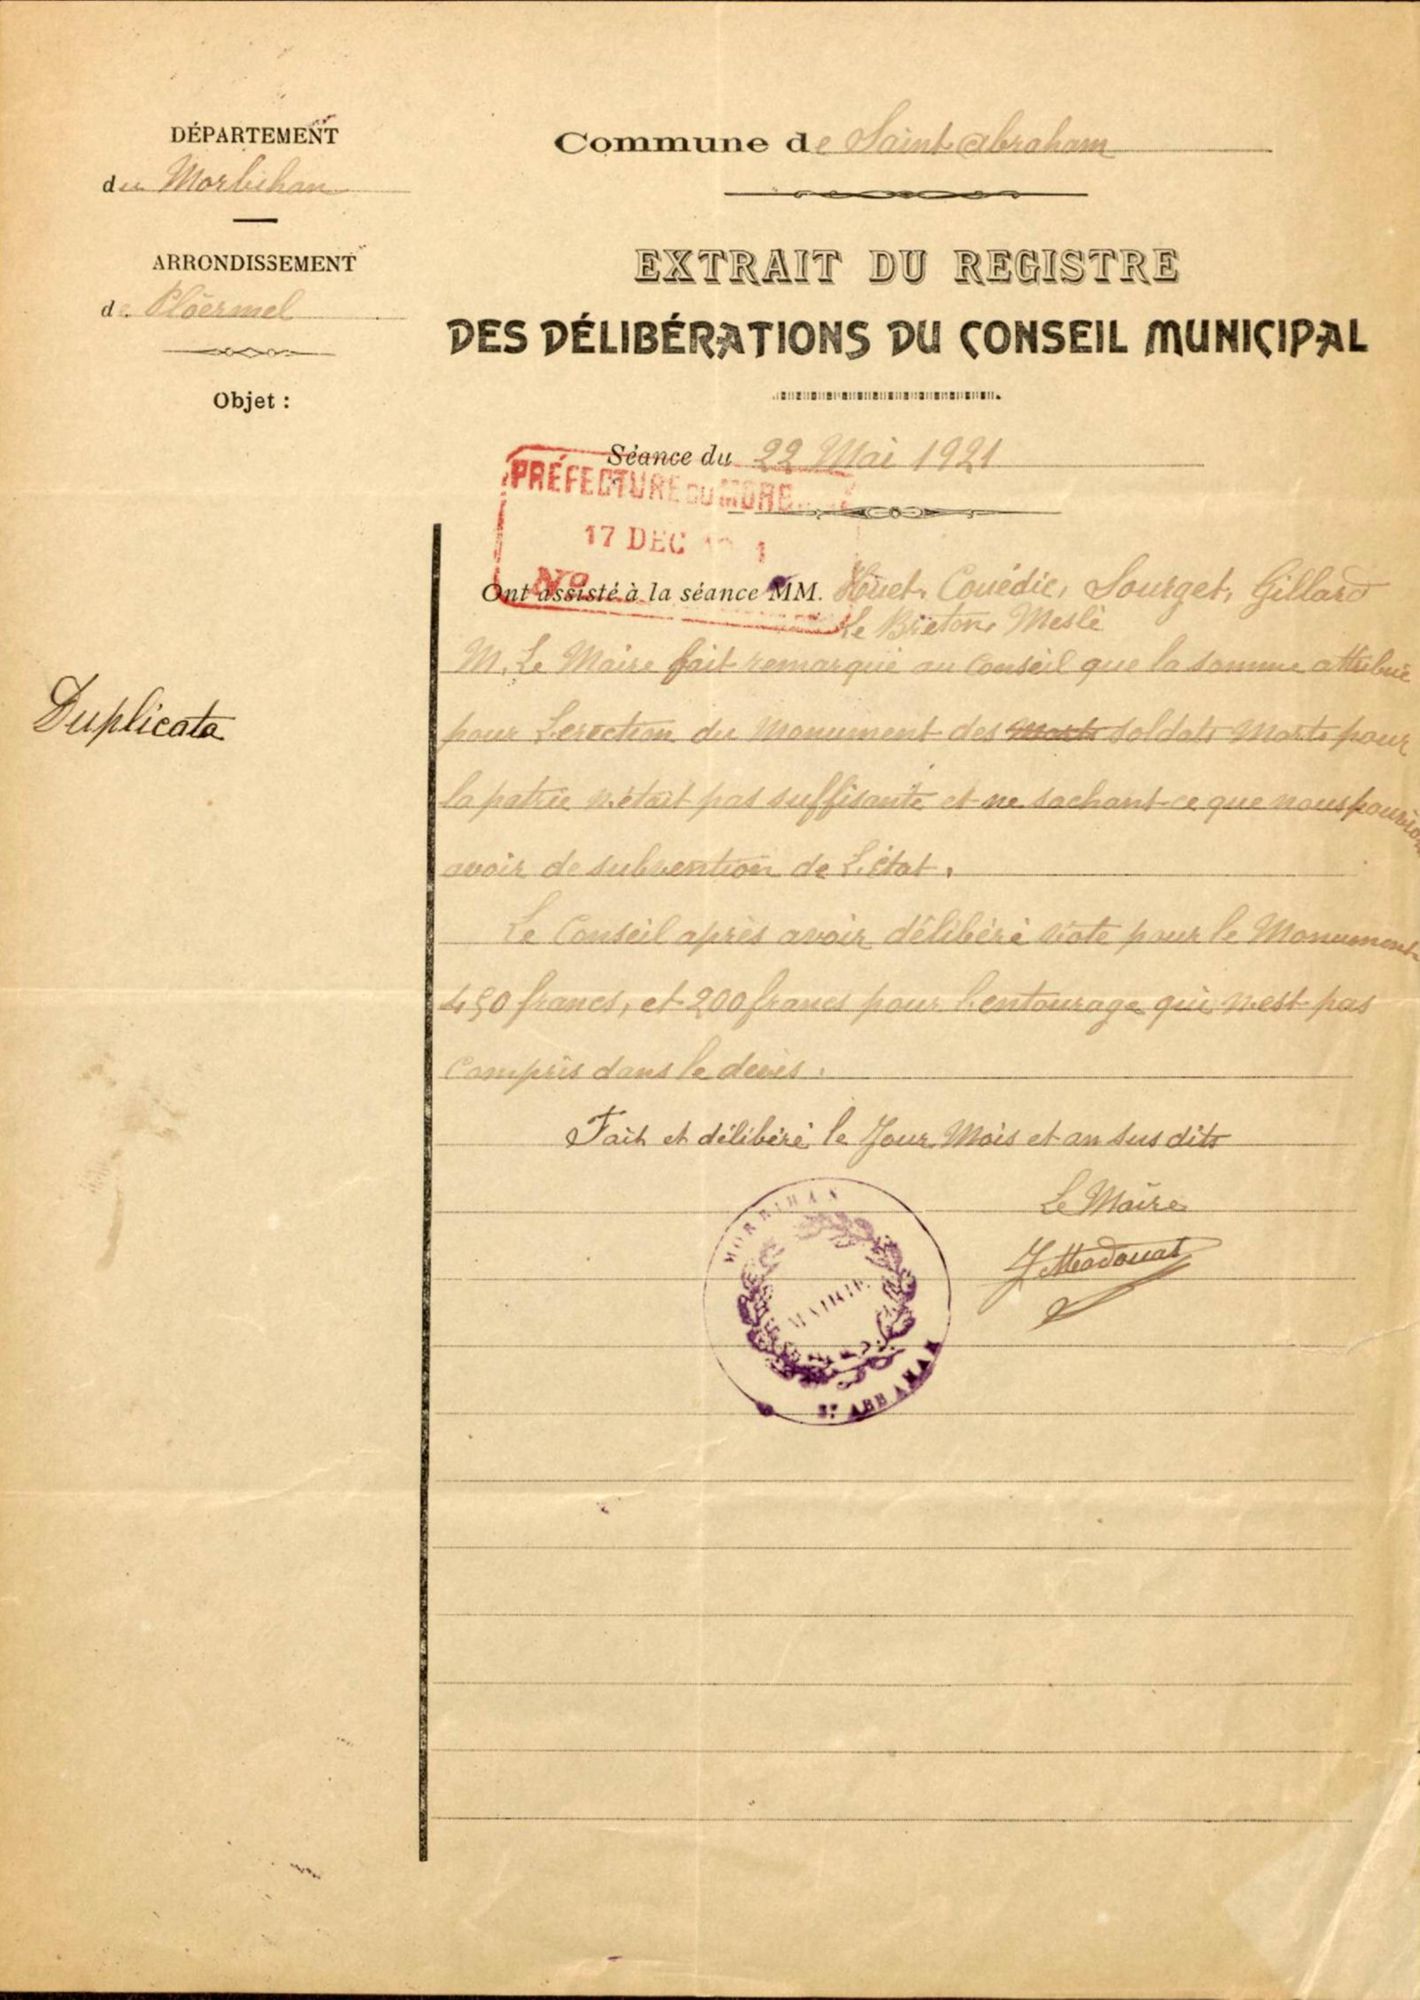 DÉPARTEMENT
du Morbihan
ARRONDISSEMENT
de Ploërmel
Objet :
Duplicata
Commune de Saint Abraham
EXTRAIT DU REGISTRE
DES DÉLIBÉRATIONS DU CONSEIL MUNICIPAL
Séance du 22 Mai 1921
PRÉFECTURE DU MORB
17 DEC 1
No
Ont assisté à la séance MM. Huet, Couédic, Sourget, Gillard
Le Breton, Meslé
M. Le Maire fait remarqué au Conseil que la somme attribué
pour L'erection du Monument des Morts soldats Morts pour
la patrie n'était pas suffisante et ne sachant ce que nous pourrions
avoir de subvention de L'état.
Le Conseil après avoir délibéré vote pour le Monument
450 francs, et 200 francs pour l'entourage qui n'est pas
Compris dans le devis.
Fait et délibéré le Jour Mois et an susdits
Le Maire
J Madouat
MORBIHAN
MAIRIE
ST ABRAHAM